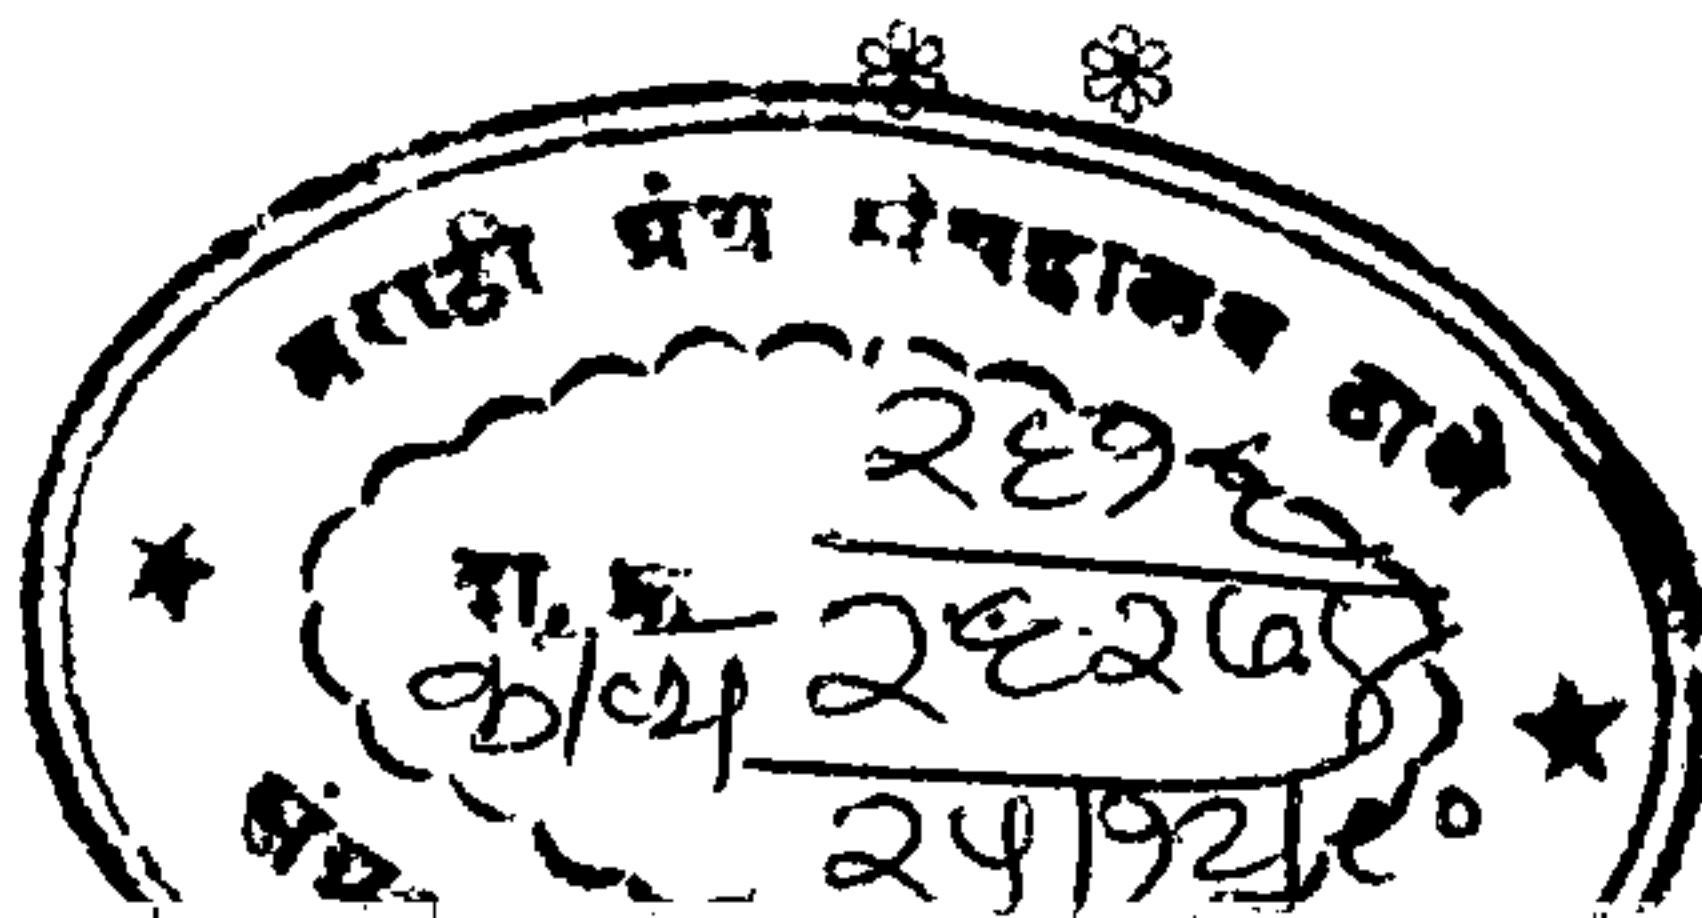 मराठी ग्रंथ संग्रहालय ठाणे
२६१६
दा. क्र.
काव्य २६२७
२५।१२।९०
ग्रंथ